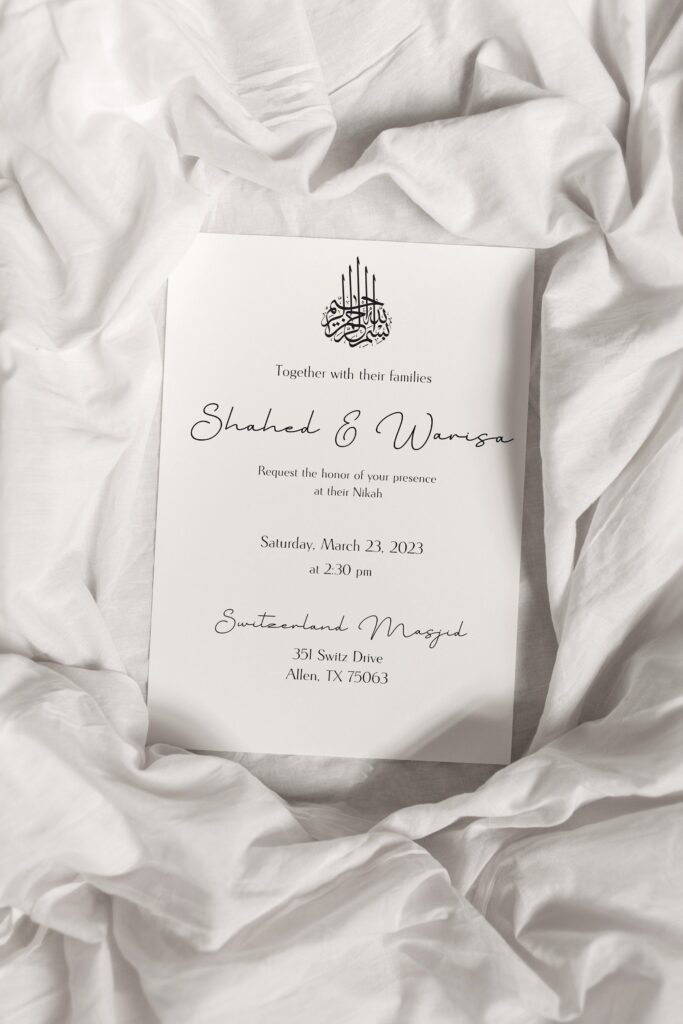 بسم الله الرحمن الرحيم
Together with their families
Shahed & Warisa
Request the honor of your presence
at their Nikah
Saturday, March 23, 2023
at 2:30 pm
Switzerland Masjid
351 Switz Drive
Allen, TX 75063